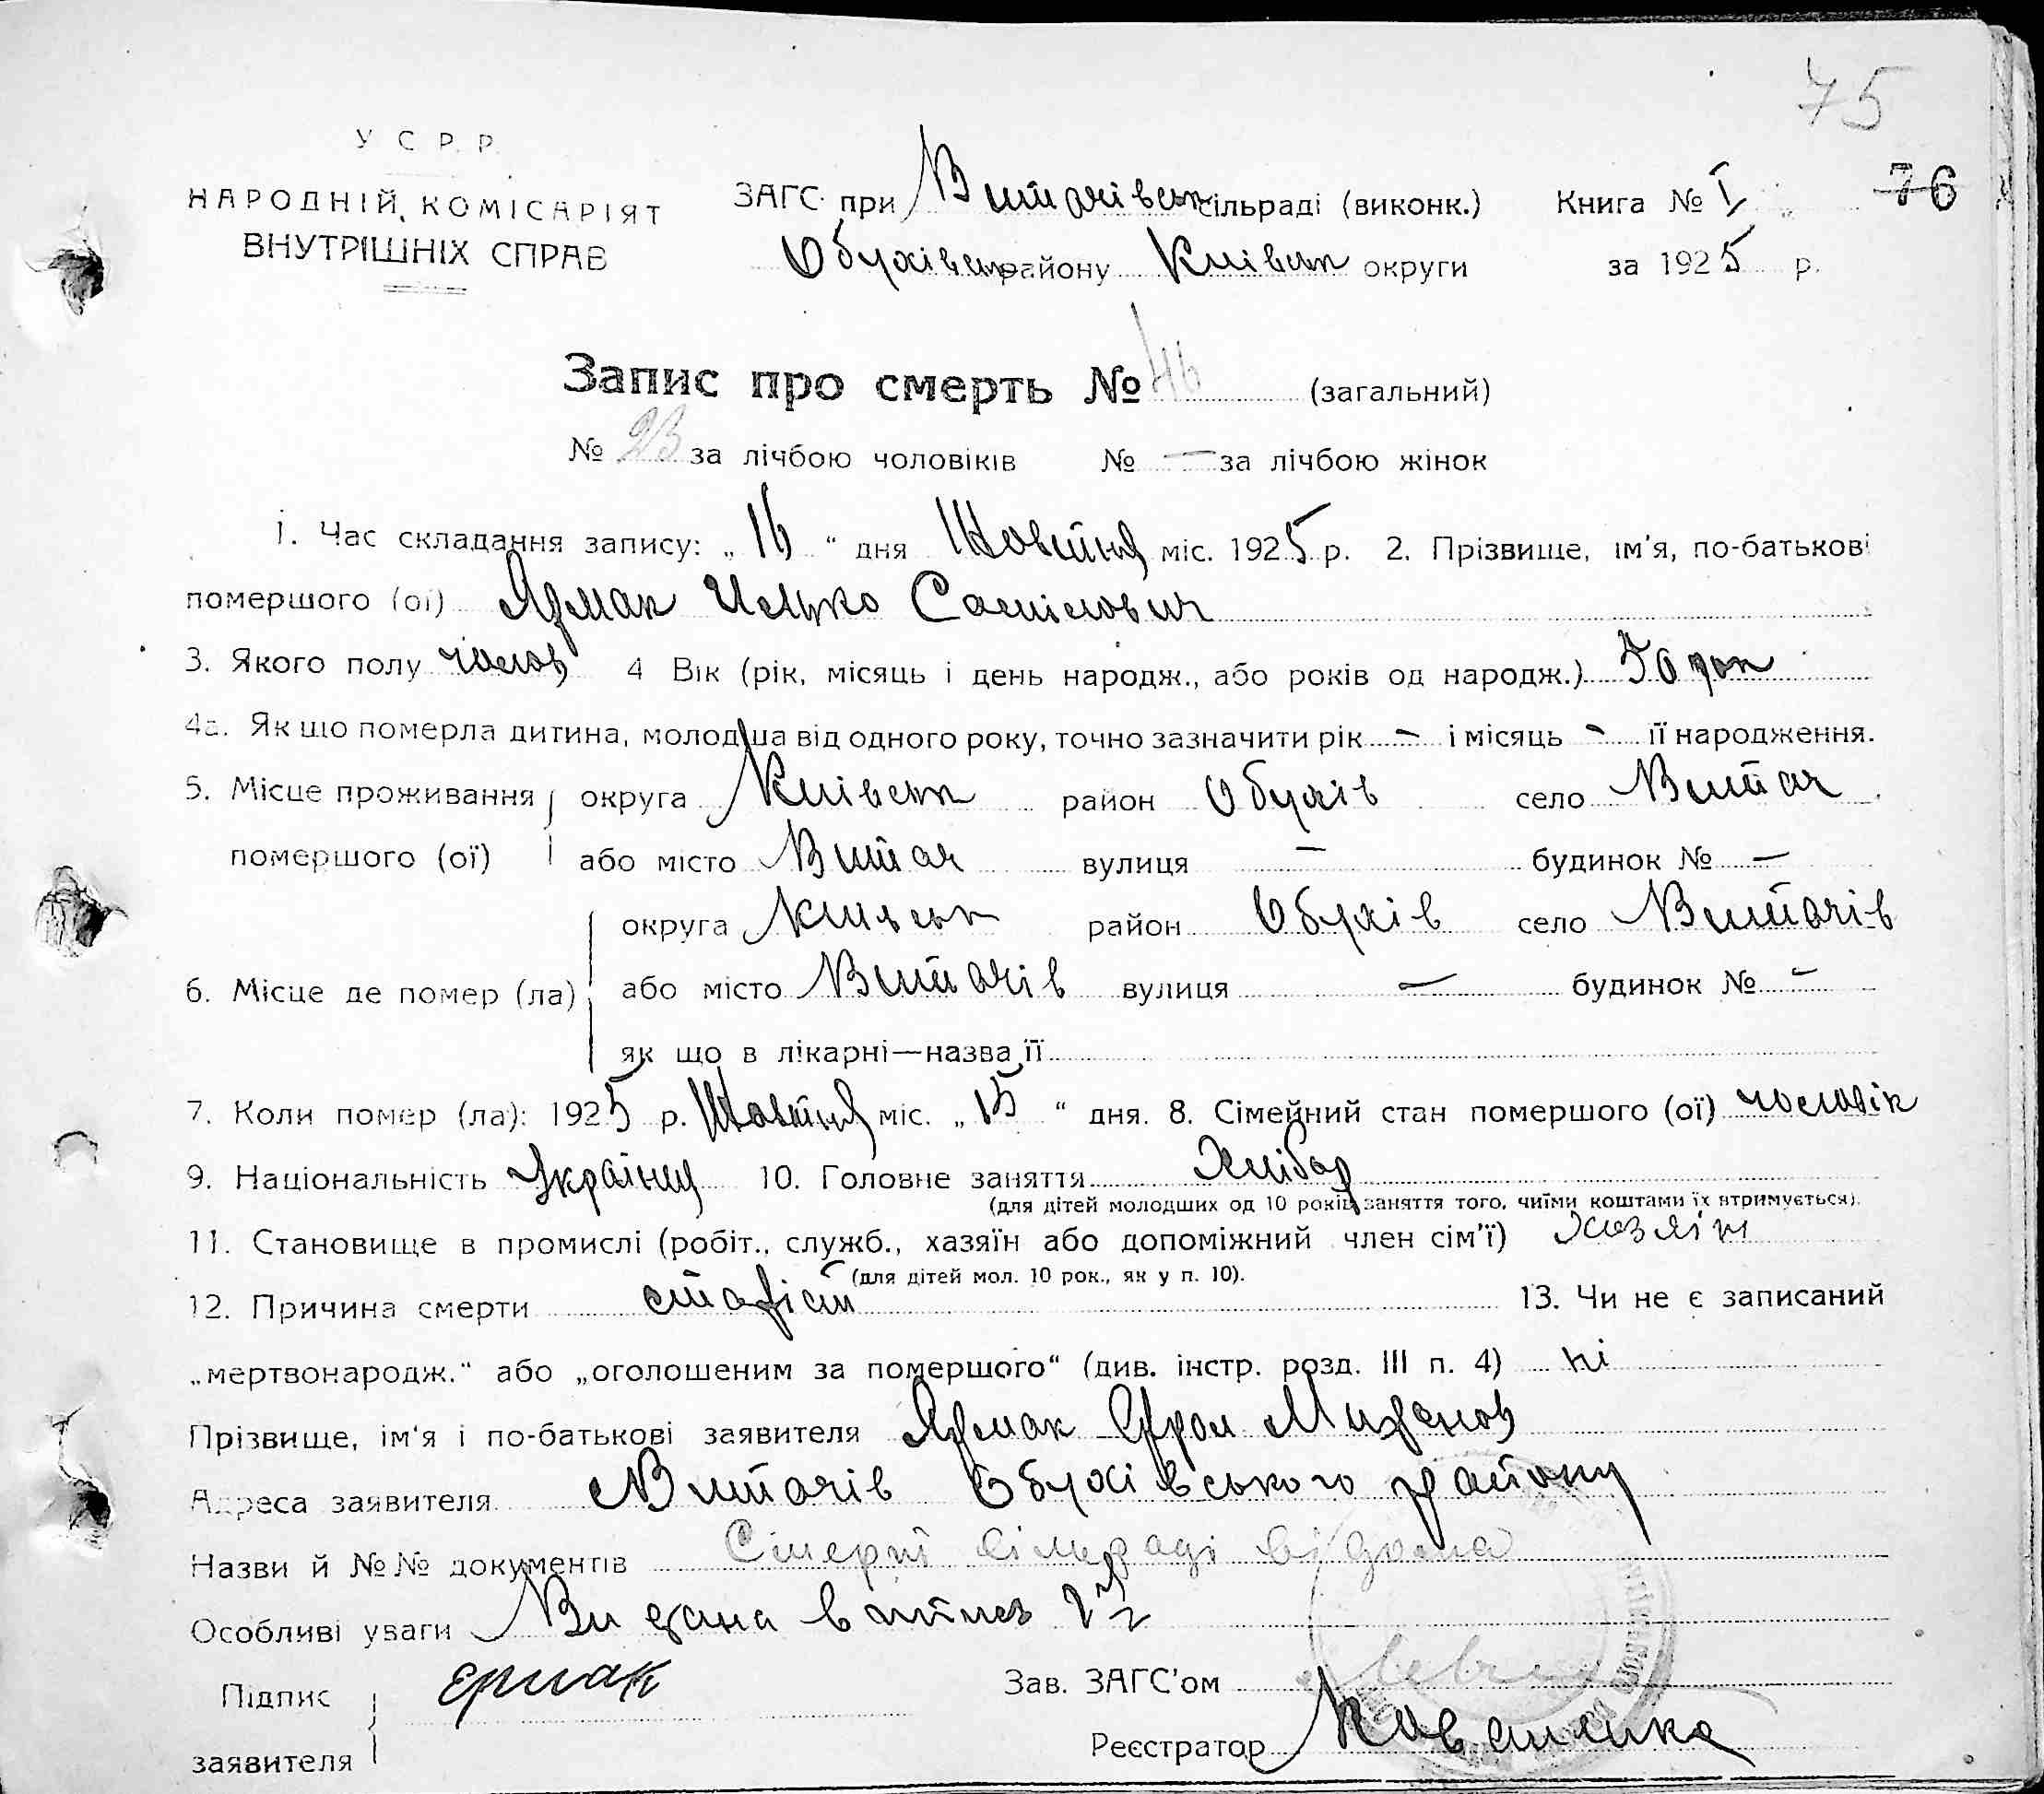 75
У С Р. Р.
76
НАРОДНІЙ КОМІСАРІЯТ
ВНУТРІШНІХ СПРАВ
ЗАГС при Витачівськ сільраді (виконк.) Книга № I
Обухівськ району Київськ округи за 1925 р.
Запис про смерть № 46 (загальний)
№ 23 за лічбою чоловіків № — за лічбою жінок
1. Час складання запису: „16“ дня Жовтня міс. 1925 р. 2. Прізвище, ім'я, по-батькові
помершого (ої) Ярмак Илько
3. Якого полу чолов 4 Вік (рік, місяць і день народж., або років од народж.) 50 рок
4а. Як що померла дитина, молодша від одного року, точно зазначити рік — і місяць - її народження.
5. Місце проживання округа Київськ район Обухів село Витач
помершого (ої) або місто Витач вулиця — будинок № —
округа Київськ район Обухів село Витачів
6. Місце де помер (ла) або місто Витачів вулиця — будинок № —
як що в лікарні—назва її
7. Коли помер (ла): 1925 р. Жовтня міс. „15“ дня. 8. Сімейний стан помершого (ої) чоловік
9. Національність Українця 10. Головне заняття Хлібор
(для дітей молодших од 10 років заняття того, чиїми коштами їх втримується).
11. Становище в промислі (робіт., служб., хазяїн або допоміжний член сім'ї) хазяїн
(для дітей мол. 10 рок., як у п. 10).
12. Причина смерти старість 13. Чи не є записаний
„мертвонародж.“ або „оголошеним за помершого“ (див. інстр. розд. III п. 4) ні
Прізвище, ім'я і по-батькові заявителя Ярмак
Адреса заявителя Витачів Обухівського району
Назви й №№ документів Смерть сільраді відома
Особливі уваги Видана
Підпис Ермак Зав. ЗАГС'ом
заявителя Реєстратор Коваленко